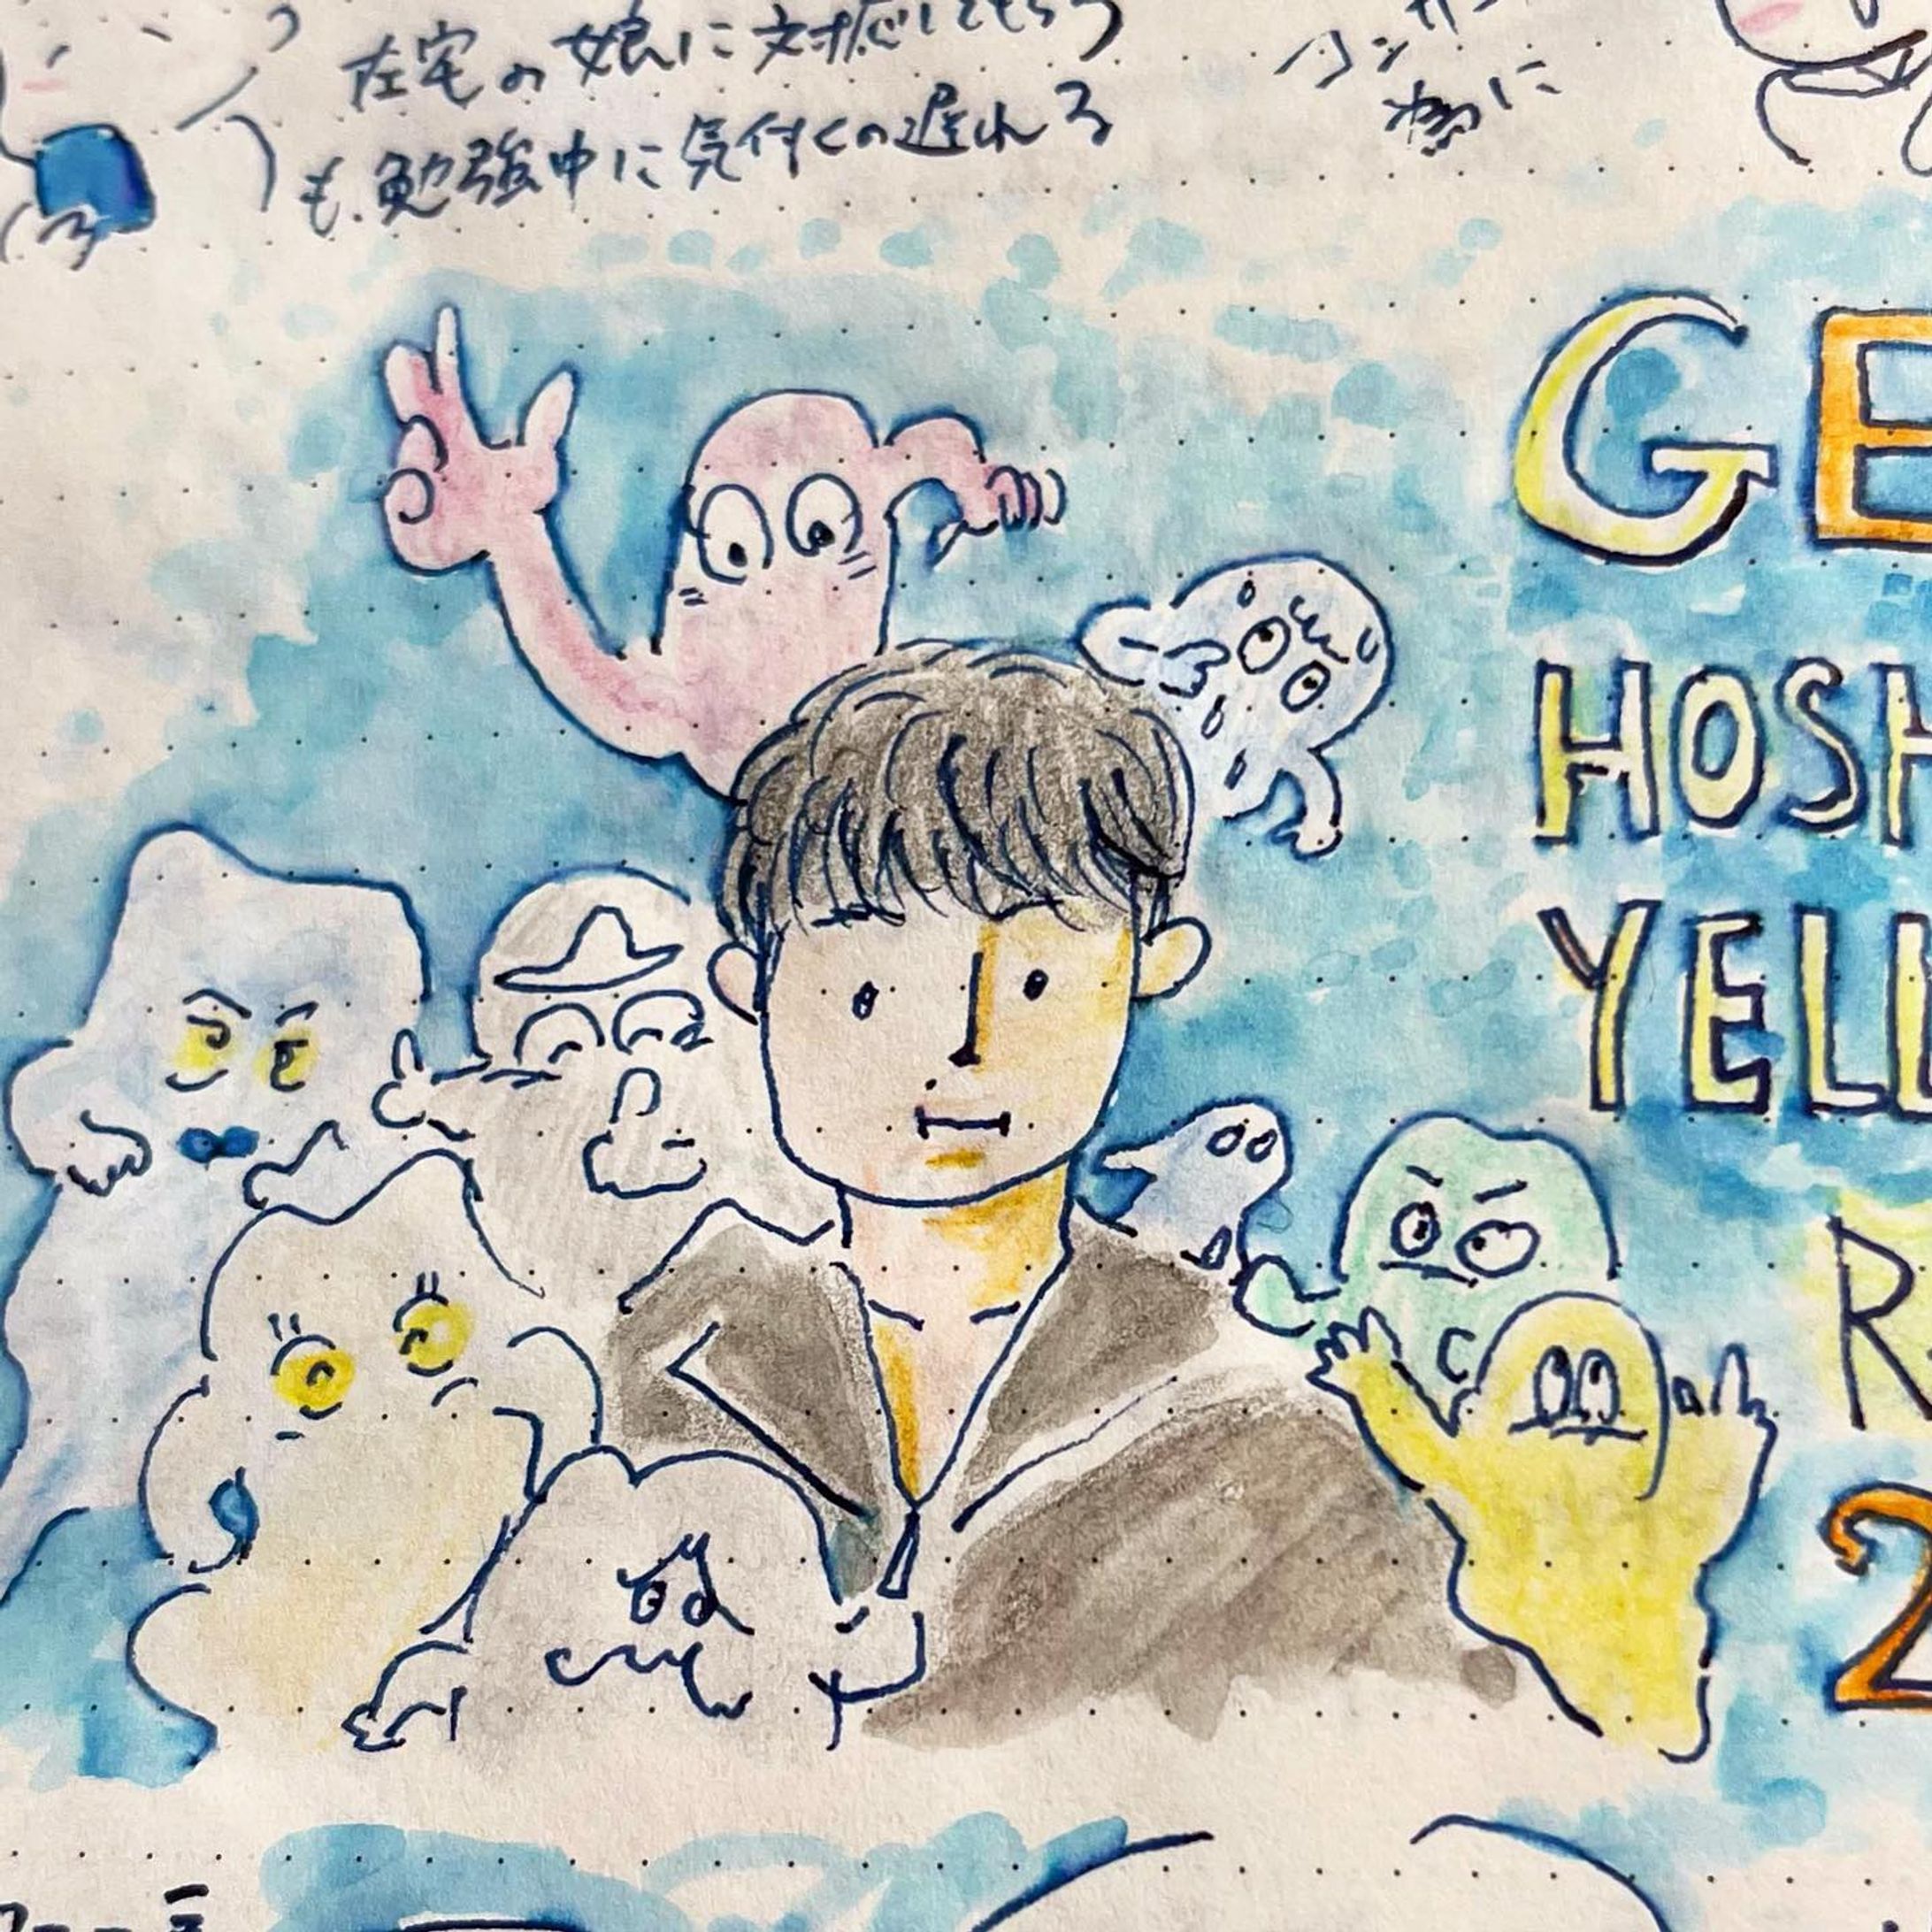 在宅の娘に対応してもらう
も、勉強中に気付くの遅れる
様に
GE
HOSH
YELL
R
2